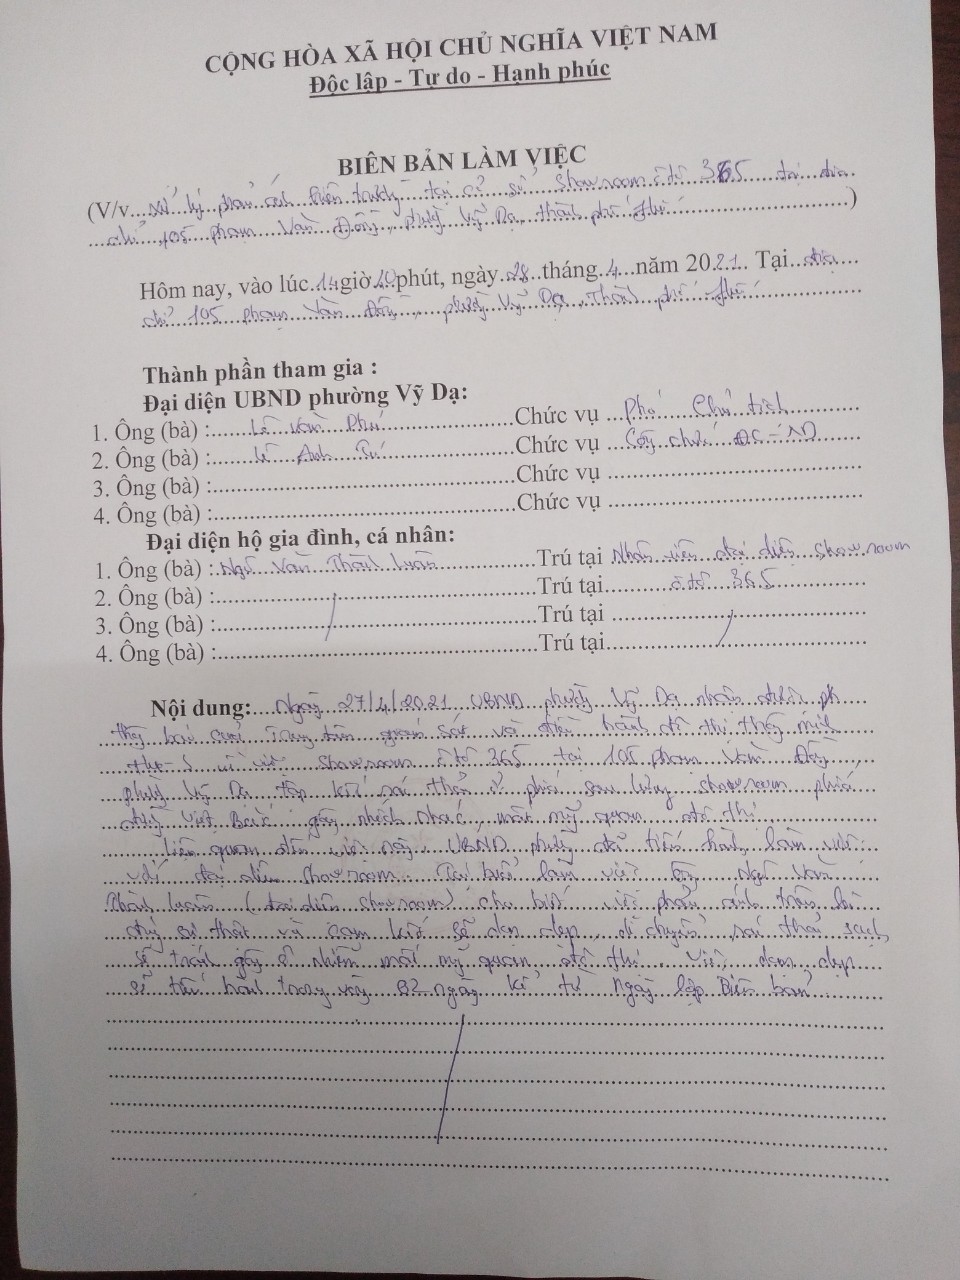 CỘNG HÒA XÃ HỘI CHỦ NGHĨA VIỆT NAM
Độc lập - Tự do - Hạnh phúc
BIÊN BẢN LÀM VIỆC
(V/v...xử lý phản ánh hiện trường tại cơ sở showroom ô tô 365 tại địa
chỉ 105 Phạm Văn Đồng, phường Vỹ Dạ, thành phố Huế)
Hôm nay, vào lúc 14 giờ 20 phút, ngày 28 tháng 4 năm 2021. Tại địa
chỉ 105 Phạm Văn Đồng, phường Vỹ Dạ, Thành phố Huế
Thành phần tham gia :
Đại diện UBND phường Vỹ Dạ:
1. Ông (bà) : Lê Văn Phú Chức vụ Phó Chủ tịch
2. Ông (bà) : Lê Anh Tú Chức vụ Công chức ĐC-XD
3. Ông (bà) : Chức vụ
4. Ông (bà) : Chức vụ
Đại diện hộ gia đình, cá nhân:
1. Ông (bà) : Ngô Văn Thành Luân Trú tại Nhân viên đại diện showroom
2. Ông (bà) : Trú tại ô tô 365
3. Ông (bà) : Trú tại
4. Ông (bà) : Trú tại
Nội dung: Ngày 27/4/2021 UBND phường Vỹ Dạ nhận được
của Trung tâm giám sát và điều hành đô thị thông minh
về việc showroom ô tô 365 tại 105 Phạm Văn Đồng,
phường Vỹ Dạ tập kết rác thải ở phía sau lưng showroom phía
đường Việt Bắc gây nhếch nhác, mất mỹ quan đô thị
Liên quan đến việc này UBND phường đã tiến hành làm việc
với đại diện showroom. Tại buổi làm việc ông Ngô Văn
Thành Luân (đại diện showroom) cho biết việc phản ánh trên là
đúng sự thật và cam kết sẽ dọn dẹp, di chuyển rác thải sạch
sẽ tránh gây ô nhiễm mất mỹ quan đô thị. Việc dọn dẹp
sẽ tiến hành trong vòng 02 ngày kể từ ngày lập Biên bản